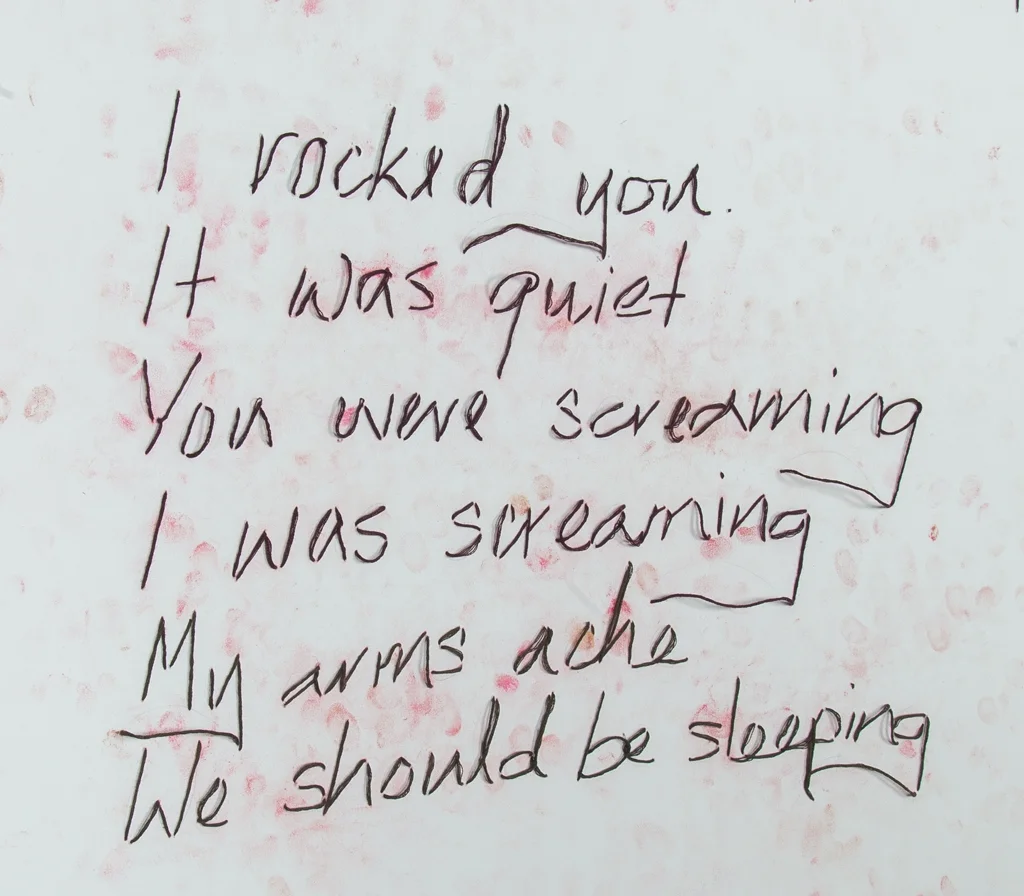 I rocked you.
It was quiet
You were screaming
I was screaming
My arms ache
We should be sleeping